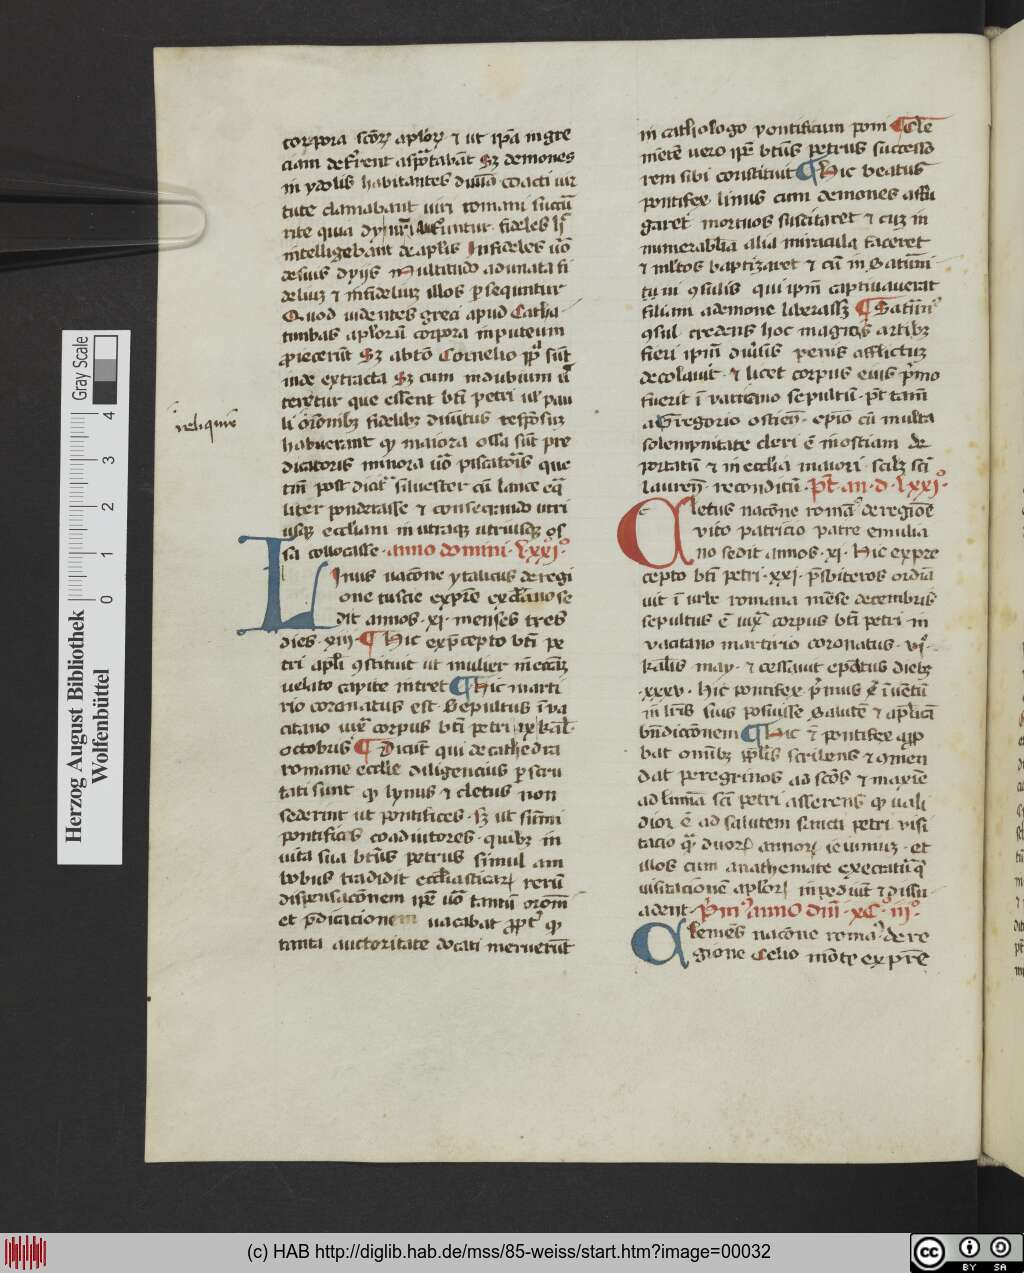 corpora scõrꝝ aplõrꝝ ⁊ ut ip̃a in gre
ciam deferent asportabãt Sꝫ demones
in ydolis habitantes diuĩa coacti uir
tute clamabant uiri romani succũ
rite quia dij
intelligebant de aplis Infideles uõ
de suis dyijs Multitudo adunata fi
deliuꝫ ⁊ infideliuꝫ illos ꝑsequntur
Quod uidentes greci apud Catha
tumbas aplõrum corpora in puteum
ꝓiecerũt Sꝫ ab Cornelio pp̃ sũt
inde extracta Sꝫ cum in dubium
teretur que essent bt̃i petri ul̾ pau
li fidelibꝫ diuĩtus respõsuꝫ
habuerant ꝙ maiora ossa sũt pre
dicatoris minora uõ piscatoris que
tñ post siluester cũ lance eq̃
liter ponderasse ⁊ consecrando utri
usqꝫ eccliam in utraqꝫ utriusqꝫ os
sa collocasse · anno domini · lxxi°
Linus nacõne ytalicus de regi
one tuscie ex pr̃e se
dit annos · xi · menses tres
dies · xiij · Hic ex p̃cepto bt̃i pe
tri apl̃i ꝯstituit ut mulier in eccl̃iꝫ
uelato capite intret Hic marti
rio coronatus est · Sepultus ĩ va
ticano corpus bt̃i petri ix kal̃
octobris Dicũt qui de cathedra
romane ecclie diligencius ꝑscru
tati sunt ꝙ lynus ⁊ cletus non
sederint ut pontifices · sꝫ ut sũmi
pontificis coadiutores · quibꝫ in
uita sua bt̃us petrus simul am
bobus tradidit ecclĩasticarꝝ rerũ
dispensacõnem ipẽ uõ tantũ orõni
et p̃dicationem uacabat ꝓpt̾ ꝙ
tanta auctoritate docati meruerũt
in cathologo pontificum poni Cle
mẽtẽ uero ip̃e bt̃us petrus successo
rem sibi constituit Hic beatus
pontifex linus cum demones affu
garet mortuos suscitaret ⁊ cuꝫ in
numerabilia alia miracula faceret
⁊ ml̾tos baptizaret ⁊ cũ in Saturni
ni ꝯsulis qui ip̃m captiuauerat
filiam a demone liberassꝫ Saturñ°
ꝯsul credens hoc magicis artibꝫ
fieri ip̃m diũsis penis afflictuꝫ
decolauit · ⁊ licet corpus eius p̾mo
fuerit ĩ vaticano sepultũ · p̾t tam̃
a Gregorio ostien̄ · ep̃o cũ multa
solempnitate cleri ẽ in ostiam de
portatũ ⁊ in ecclia maiori · scilꝫ sc̃i
laurẽñ · reconditũ · P̾t an · d · lxxi°
Cletus nacõne roma° de regiõe
vico patricio patre emilia
no sedit annos · xi · Hic ex pre
cepto bt̃i petri · xxi · p̃sbiteros ordĩa
uit ĩ urbe romana mẽse decembris
sepultus ẽ iuxᵃ corpus bt̃i petri in
vaticano martirio coronatus · vi°
kalis may · ⁊ cessauit epatus diebꝫ
· xxxv · Hic pontifex p̾mus ẽ ĩuẽtũ
in lr̃is suis posuisse Salutẽ ⁊ ap̃licã
bñdictõnem Hic ẽ pontifex
bat omĩbꝫ ppl̃is scribens ⁊ omen
dat peregrinos ad scõs ⁊ maxĩe
ad limĩa sc̃i petri asserens ꝙ uali
dior ẽ ad salutem sancti petri visi
tacio qᵃ duorꝝ annorꝝ ieiuniuꝫ · et
illos cum anathemate execratũ q̃
uisitacionẽ aplõrꝝ inpediũt ⁊ dissu
adent · anno dñi · xc° iii°
Clemẽs nacõne roma° de re
gione Celio mõte ex pr̃e
Herzog August Bibliothek
Wolfenbüttel
0 1 2 3 4
Gray Scale
(c) HAB http://diglib.hab.de/mss/85-weiss/start.htm?image=00032
cc BY SA